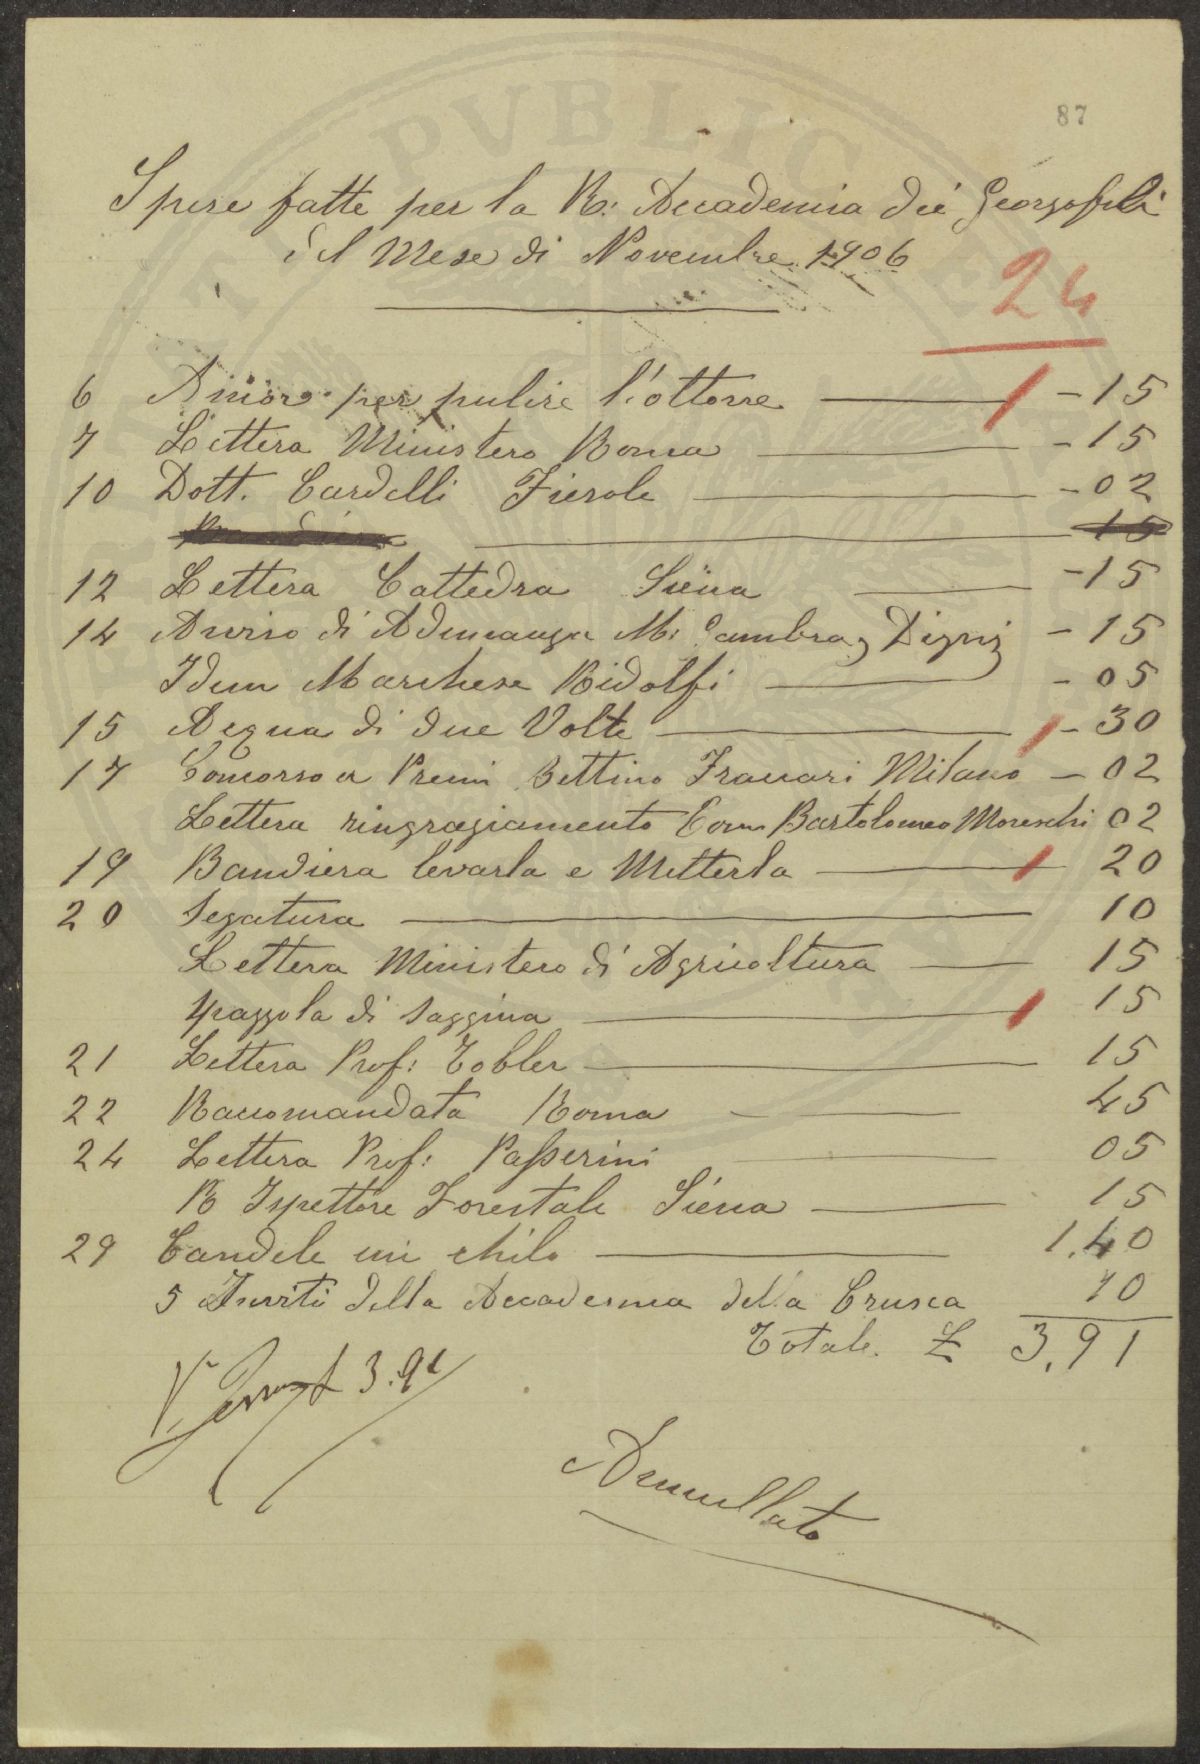 87
Spese fatte per la R. Accademia dei Georgofili
del Mese di Novembre 1906
24
6 per pulire l'ottone - 15
7 Lettera Ministero Roma - 15
10 Dott. Cardelli Fiesole - 02
15
12 Lettera Cattedra Siena - 15
14 Avviso di Adunanza M: - 15
Idem Marchese Ridolfi - 05
15 Acqua di due Volte - 30
17 Concorso a Premi Bettino Milano - 02
Lettera ringraziamento Com. Bartolomeo Moreschi 02
19 Bandiera levarla e Metterla 20
20 Segatura 10
Lettera Ministero di Agricoltura 15
spazzola di saggina 15
21 Lettera Prof: Tobler 15
22 Raccomandata Roma 45
24 Lettera Prof: Passerini 05
R Ispettore Forestale Siena 15
29 Candele un chilo 1.40
5 Inviti della Accademia della Crusca 10
Totale. £ 3,91
3.91
Annullato